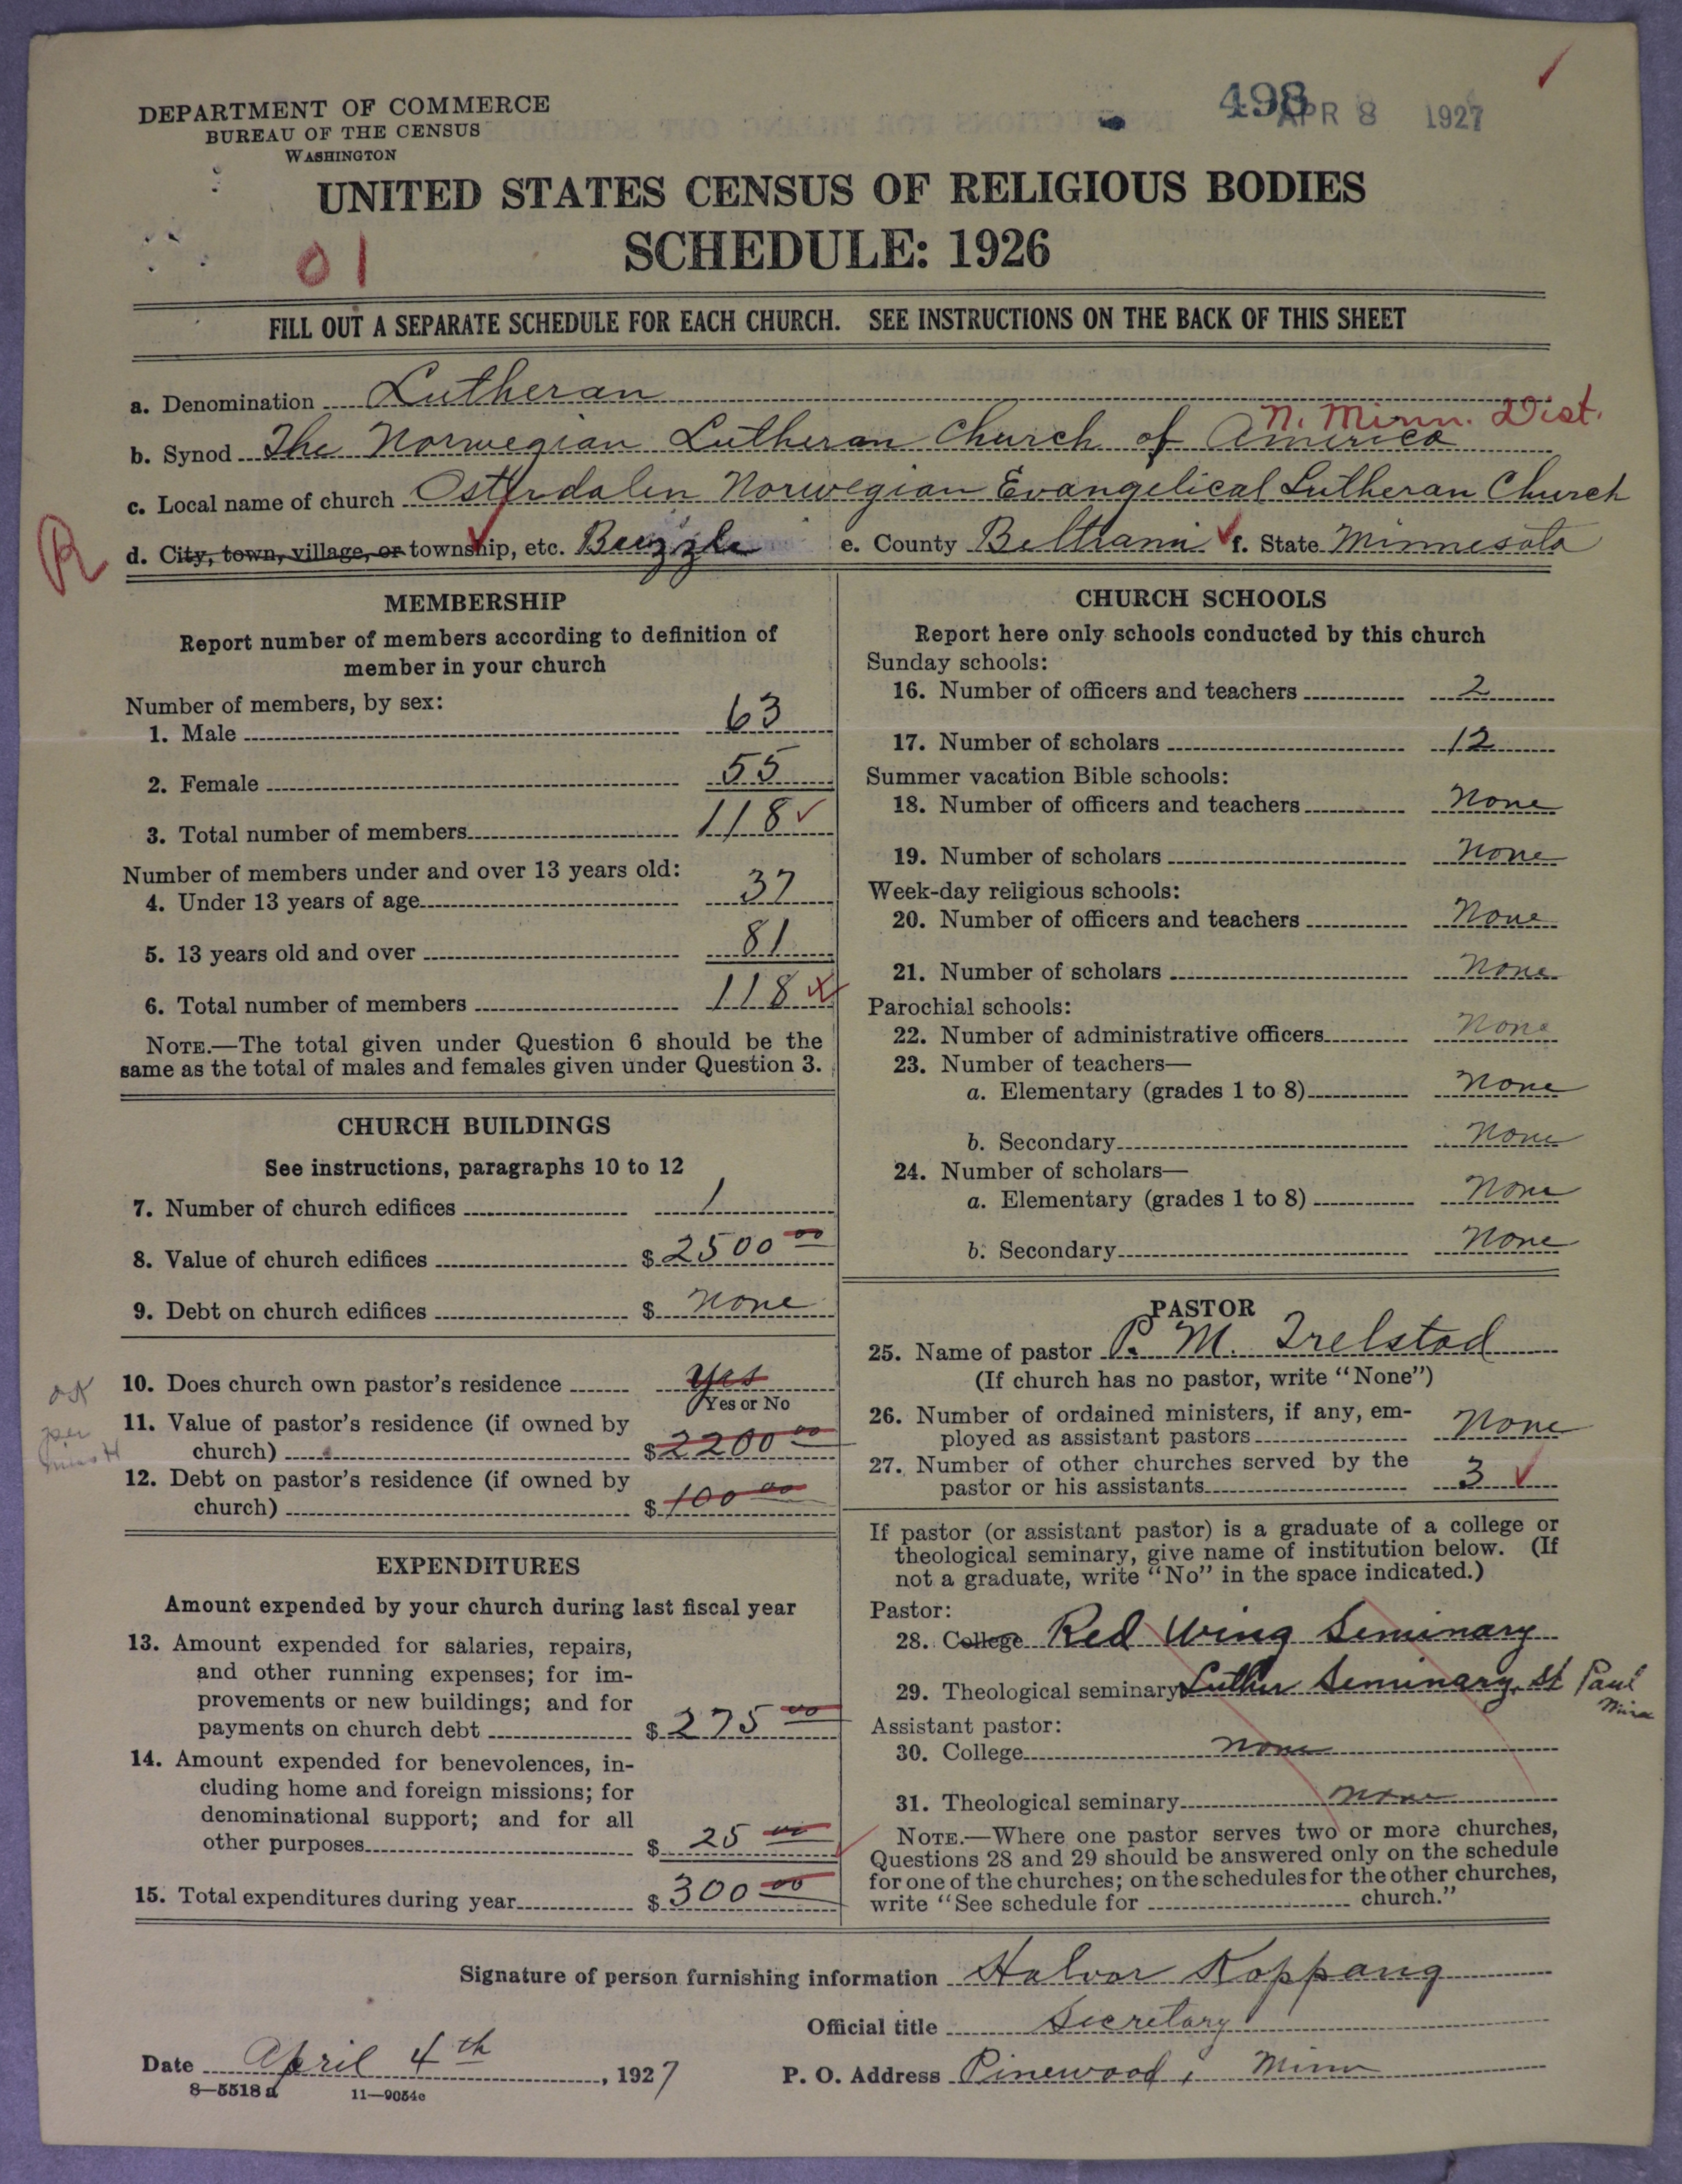 498
APR 8 1927
DEPARTMENT OF COMMERCE
BUREAU OF THE CENSUS
WASHINGTON
UNITED STATES CENSUS OF RELIGIOUS BODIES
SCHEDULE: 1926
01
FILL OUT A SEPARATE SCHEDULE FOR EACH CHURCH. SEE INSTRUCTIONS ON THE BACK OF THIS SHEET
a. Denomination Lutheran
N. Minn. Dist.
b. Synod The Norwegian Lutheran Church of America
c. Local name of church Osterdalen Norwegian Evangelical Lutheran Church
R
d. City, town, village, or township, etc. Buzzle e. County Beltrami f. State Minnesota
MEMBERSHIP
Report number of members according to definition of
member in your church
Number of members, by sex:
1. Male 63
2. Female 55
3. Total number of members 118
Number of members under and over 13 years old:
4. Under 13 years of age 37
5. 13 years old and over 81
6. Total number of members 118
NOTE.—The total given under Question 6 should be the
same as the total of males and females given under Question 3.
CHURCH BUILDINGS
See instructions, paragraphs 10 to 12
7. Number of church edifices 1
8. Value of church edifices $ 2500 00
9. Debt on church edifices $ None
OK
per
10. Does church own pastor's residence Yes
Yes or No
11. Value of pastor's residence (if owned by
church) $ 2200 00
12. Debt on pastor's residence (if owned by
church) $ 100 00
EXPENDITURES
Amount expended by your church during last fiscal year
13. Amount expended for salaries, repairs,
and other running expenses; for im-
provements or new buildings; and for
payments on church debt $ 275 00
14. Amount expended for benevolences, in-
cluding home and foreign missions; for
denominational support; and for all
other purposes $ 25 00
15. Total expenditures during year $ 300 00
CHURCH SCHOOLS
Report here only schools conducted by this church
Sunday schools:
16. Number of officers and teachers 2
17. Number of scholars 12
Summer vacation Bible schools:
18. Number of officers and teachers None
19. Number of scholars None
Week-day religious schools:
20. Number of officers and teachers None
21. Number of scholars None
Parochial schools:
22. Number of administrative officers None
23. Number of teachers—
a. Elementary (grades 1 to 8) None
b. Secondary None
24. Number of scholars—
a. Elementary (grades 1 to 8) None
b. Secondary None
PASTOR
25. Name of pastor P. M. Trelstad
(If church has no pastor, write "None")
26. Number of ordained ministers, if any, em-
ployed as assistant pastors None
27. Number of other churches served by the
pastor or his assistants 3
If pastor (or assistant pastor) is a graduate of a college or
theological seminary, give name of institution below. (If
not a graduate, write "No" in the space indicated.)
Pastor:
28. College Red Wing Seminary
29. Theological seminary Luther Seminary, St Paul
Minn
Assistant pastor:
30. College None
31. Theological seminary None
NOTE.—Where one pastor serves two or more churches,
Questions 28 and 29 should be answered only on the schedule
for one of the churches; on the schedules for the other churches,
write "See schedule for church."
Signature of person furnishing information Halvor Koppang
Official title Secretary
Date April 4th, 1927 P. O. Address Pinewood, Minn
8—5518 a 11—9054e